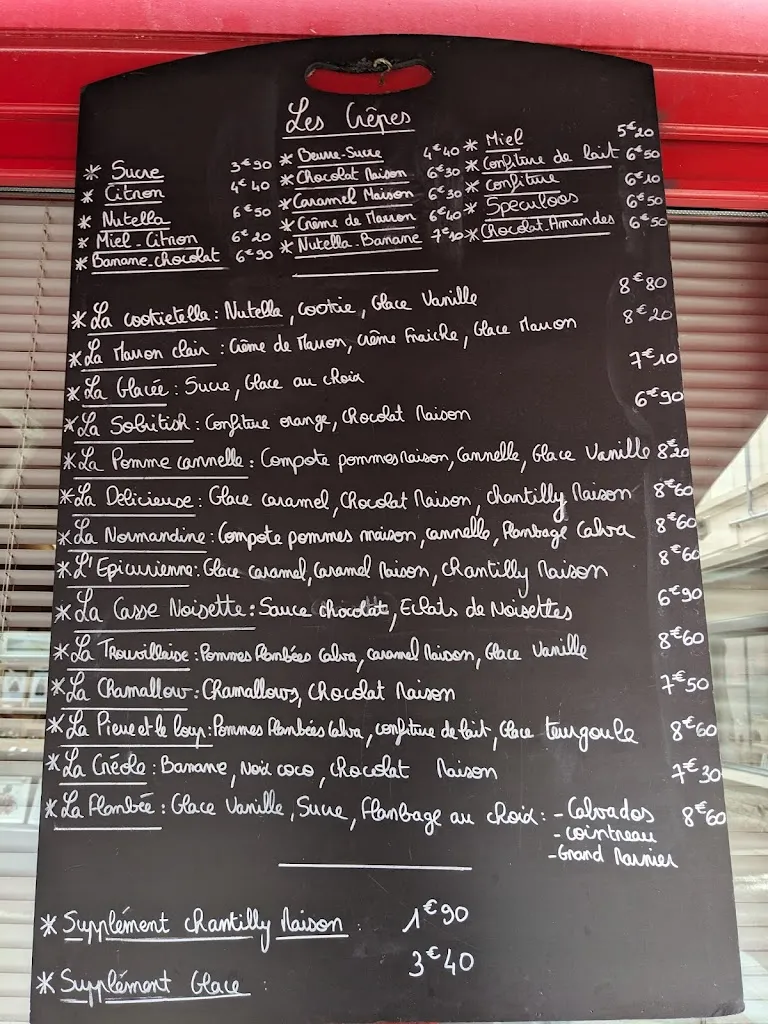 Les Crêpes
* Sucre 3€90
* Citron 4€40
* Nutella 6€50
* Miel-Citron 6€20
* Banane-chocolat 6€90
* Beurre-Sucre 4€40
* Chocolat Maison 6€30
* Caramel Maison 6€30
* Crème de Marron 6€40
* Nutella-Banane 7€10
* Miel 5€20
* Confiture de lait 6€50
* Confiture 6€10
* Speculoos 6€50
* Chocolat-Amandes 6€50
* La cookietella : Nutella, cookie, Glace Vanille 8€80
* La Marron clair : Crème de Marron, crème Fraiche, Glace Marron 8€20
* La Glacée : Sucre, Glace au choix 7€10
* La Sobritish : Confiture orange, Chocolat Maison 6€90
* La Pomme cannelle : Compote pommes Maison, Cannelle, Glace Vanille 8€20
* La Délicieuse : Glace caramel, Chocolat Maison, chantilly Maison 8€60
* La Normandine : Compote pommes maison, cannelle, Flambage Calva 8€60
* L'Epicurienne : Glace caramel, Caramel Maison, Chantilly Maison 8€60
* La Casse Noisette : Sauce chocolat, Eclats de Noisettes 6€90
* La Trouvillaise : Pommes Flambées Calva, caramel Maison, Glace Vanille 8€60
* La Chamallow : Chamallows, Chocolat Maison 7€50
* La Pierre et le loup : Pommes Flambées Calva, confiture de lait, Glace teurgoule 8€60
* La Créole : Banane, Noix coco, chocolat Maison 7€30
* La Flambée : Glace Vanille, Sucre, Flambage au choix : - Calvados 8€60
- cointreau
- Grand Marnier
* Supplément chantilly Maison : 1€90
* Supplément Glace : 3€40